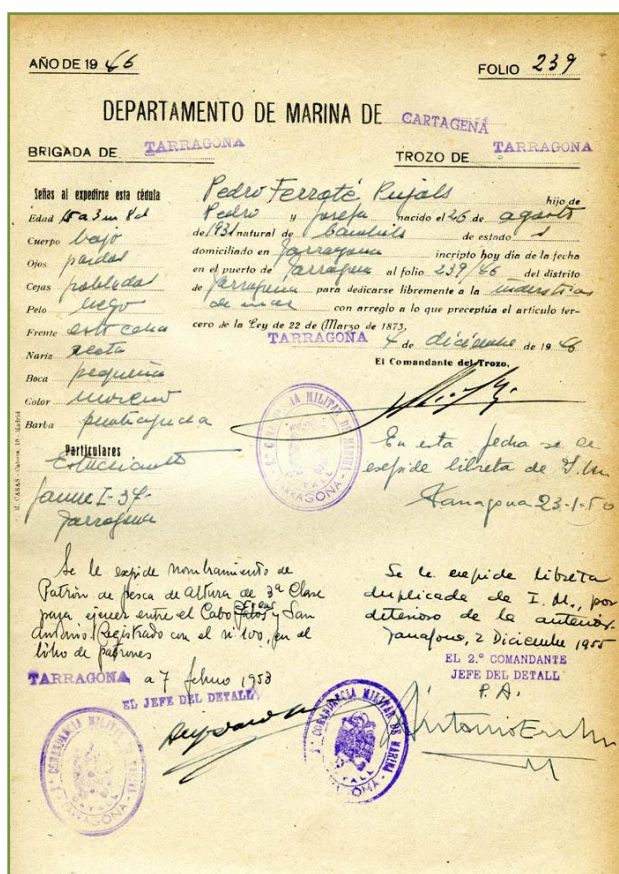 AÑO DE 19 46
FOLIO 239
DEPARTAMENTO DE MARINA DE CARTAGENA
BRIGADA DE TARRAGONA
TROZO DE TARRAGONA
Señas al expedirse esta cédula
Edad 15 a 3 m 8 d
Cuerpo bajo
Ojos pardos
Cejas pobladas
Pelo negro
Frente estrecha
Nariz recta
Boca pequeña
Color moreno
Barba puntiaguda
Particulares
Estudiante
Jaume I-34-
Tarragona
Pedro Ferraté Pujals hijo de
Pedro y Josefa nacido el 26 de agosto
de 1931 natural de Cambrils de estado s
domiciliado en Tarragona incripto hoy dia de la fecha
en el puerto de Tarragona al folio 239/46 del distrito
de Tarragona para dedicarse libremente a la
de mar con arreglo a lo que preceptúa el artículo ter-
cero de la Ley de 22 de Marzo de 1873.
TARRAGONA 4 de diciembre de 1946
El Comandante del Trozo,
En esta fecha se le
expide libreta de I.M.
Tarragona 23-1-50
Se le expide nombramiento de
Patrón de pesca de Altura de 3ª Clase
para ejercer entre el Cabo y San
Antonio. Registrado con el nº 100, en el
libro de patrones
TARRAGONA a 7 febrero 1953
EL JEFE DEL DETALL
Se le expide libreta
duplicada de I. M., por
deterioro de la anterior.
Tarragona, 2 Diciembre 1955
EL 2.º COMANDANTE
JEFE DEL DETALL
P. A.
COMANDANCIA MILITAR DE MARINA
TARRAGONA
COMANDANCIA MILITAR DE MARINA
DETALL
TARRAGONA
COMANDANCIA MILITAR DE MARINA
DETALL